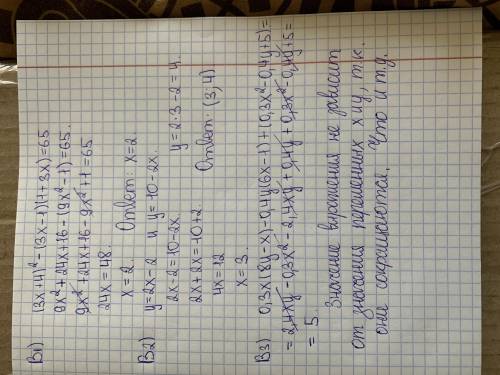 В1) (3x+4)² - (3x-1)(1+3x) = 65
9x² + 24x + 16 - (9x² - 1) = 65.
9x² + 24x + 16 - 9x² + 1 = 65
24x = 48.
x = 2. Ответ: x = 2
В2) y = 2x - 2 и y = 10 - 2x.
2x - 2 = 10 - 2x.
2x + 2x = 10 + 2.
4x = 12
x = 3.
y = 2·3 - 2 = 4.
Ответ: (3; 4)
В3) 0,3x(8y - x) - 0,4y(6x - 1) + (0,3x² - 0,4y + 5) =
= 2,4xy - 0,3x² - 2,4xy + 0,4y + 0,3x² - 0,4y + 5 =
= 5.
Значение выражения не зависит
от значения переменных x и y, т.к.
они сокращаются. Что и т.д.